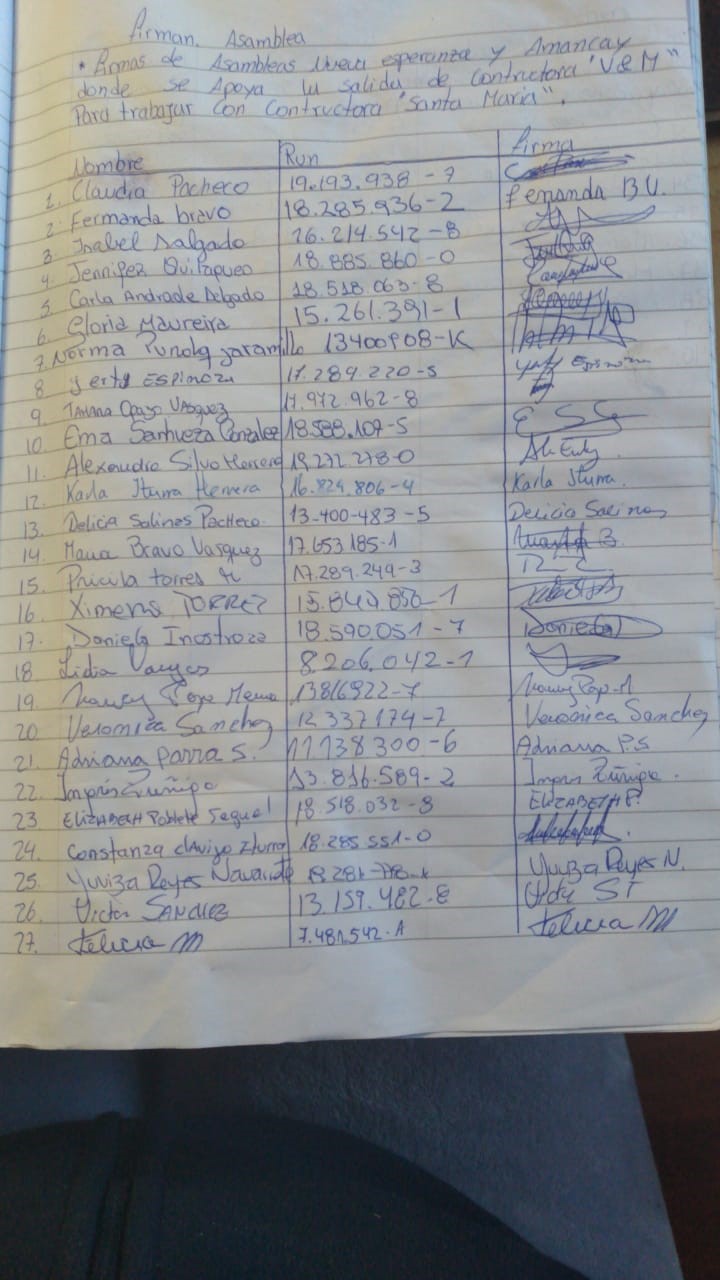 Firman. Asamblea
* Firmas de Asambleas Nueva esperanza y Amancay
donde se Apoya la salida de Contructora "V & M"
Para trabajar con Contructora "Santa Maria".
Nombre Run firma
1. Claudia Pacheco 19.193.938-7
2. Fernanda bravo 18.285.936-2 Fernanda B.V.
3. Isabel Salgado 16.214.542-8
4. Jennifer Quilapueo 18.885.860-0
5. Carla Andrade Delgado 18.518.063-8
6. Gloria Maureira 15.261.391-1
7. Norma jaramillo 13400908-K
8 Yerty ESPINOZA 17.289.220-5 Yerty Espinoza
9. Tatiana Opazo Vasquez 17.972.962-8
10. Ema Sanhueza Gonzalez 18.588.107-5 E S G
11. Alexandra Silva Herrera 19.272.278-0
12. Karla Iturra Herrera 16.824.806-4 Karla Iturra.
13. Delicia Salinas Pacheco. 13-400-483-5 Delicia Salinas
14. Maria Bravo Vasquez 17.653.185-1
15. Pricila torres 17.289.249-3
16. Ximena TORREZ 15.840.856-1
17. Daniela Inostroza 18.590.051-7 Daniela
18 Lidia Vargas 8.206.042-1
19. Nancy Mena 13816922-7
20 Veronica Sanchez 12.337174-7 Veronica Sanchez
21. Adriana parra S. 11.138.300-6 Adriana P.S
22. Zuñiga 13.816.589-2 Zuñiga.
23. ELIZABETH Poblete Seguel 18.518.032-8 ELIZABETH P.
24. Constanza Iturra 18.285.551-0
25. Yuviza Reyes Navarrete Yuviza Reyes N.
26. Victor SANCHEZ 13.159.482-8
27. Felicia M 7.481.542. Felicia M